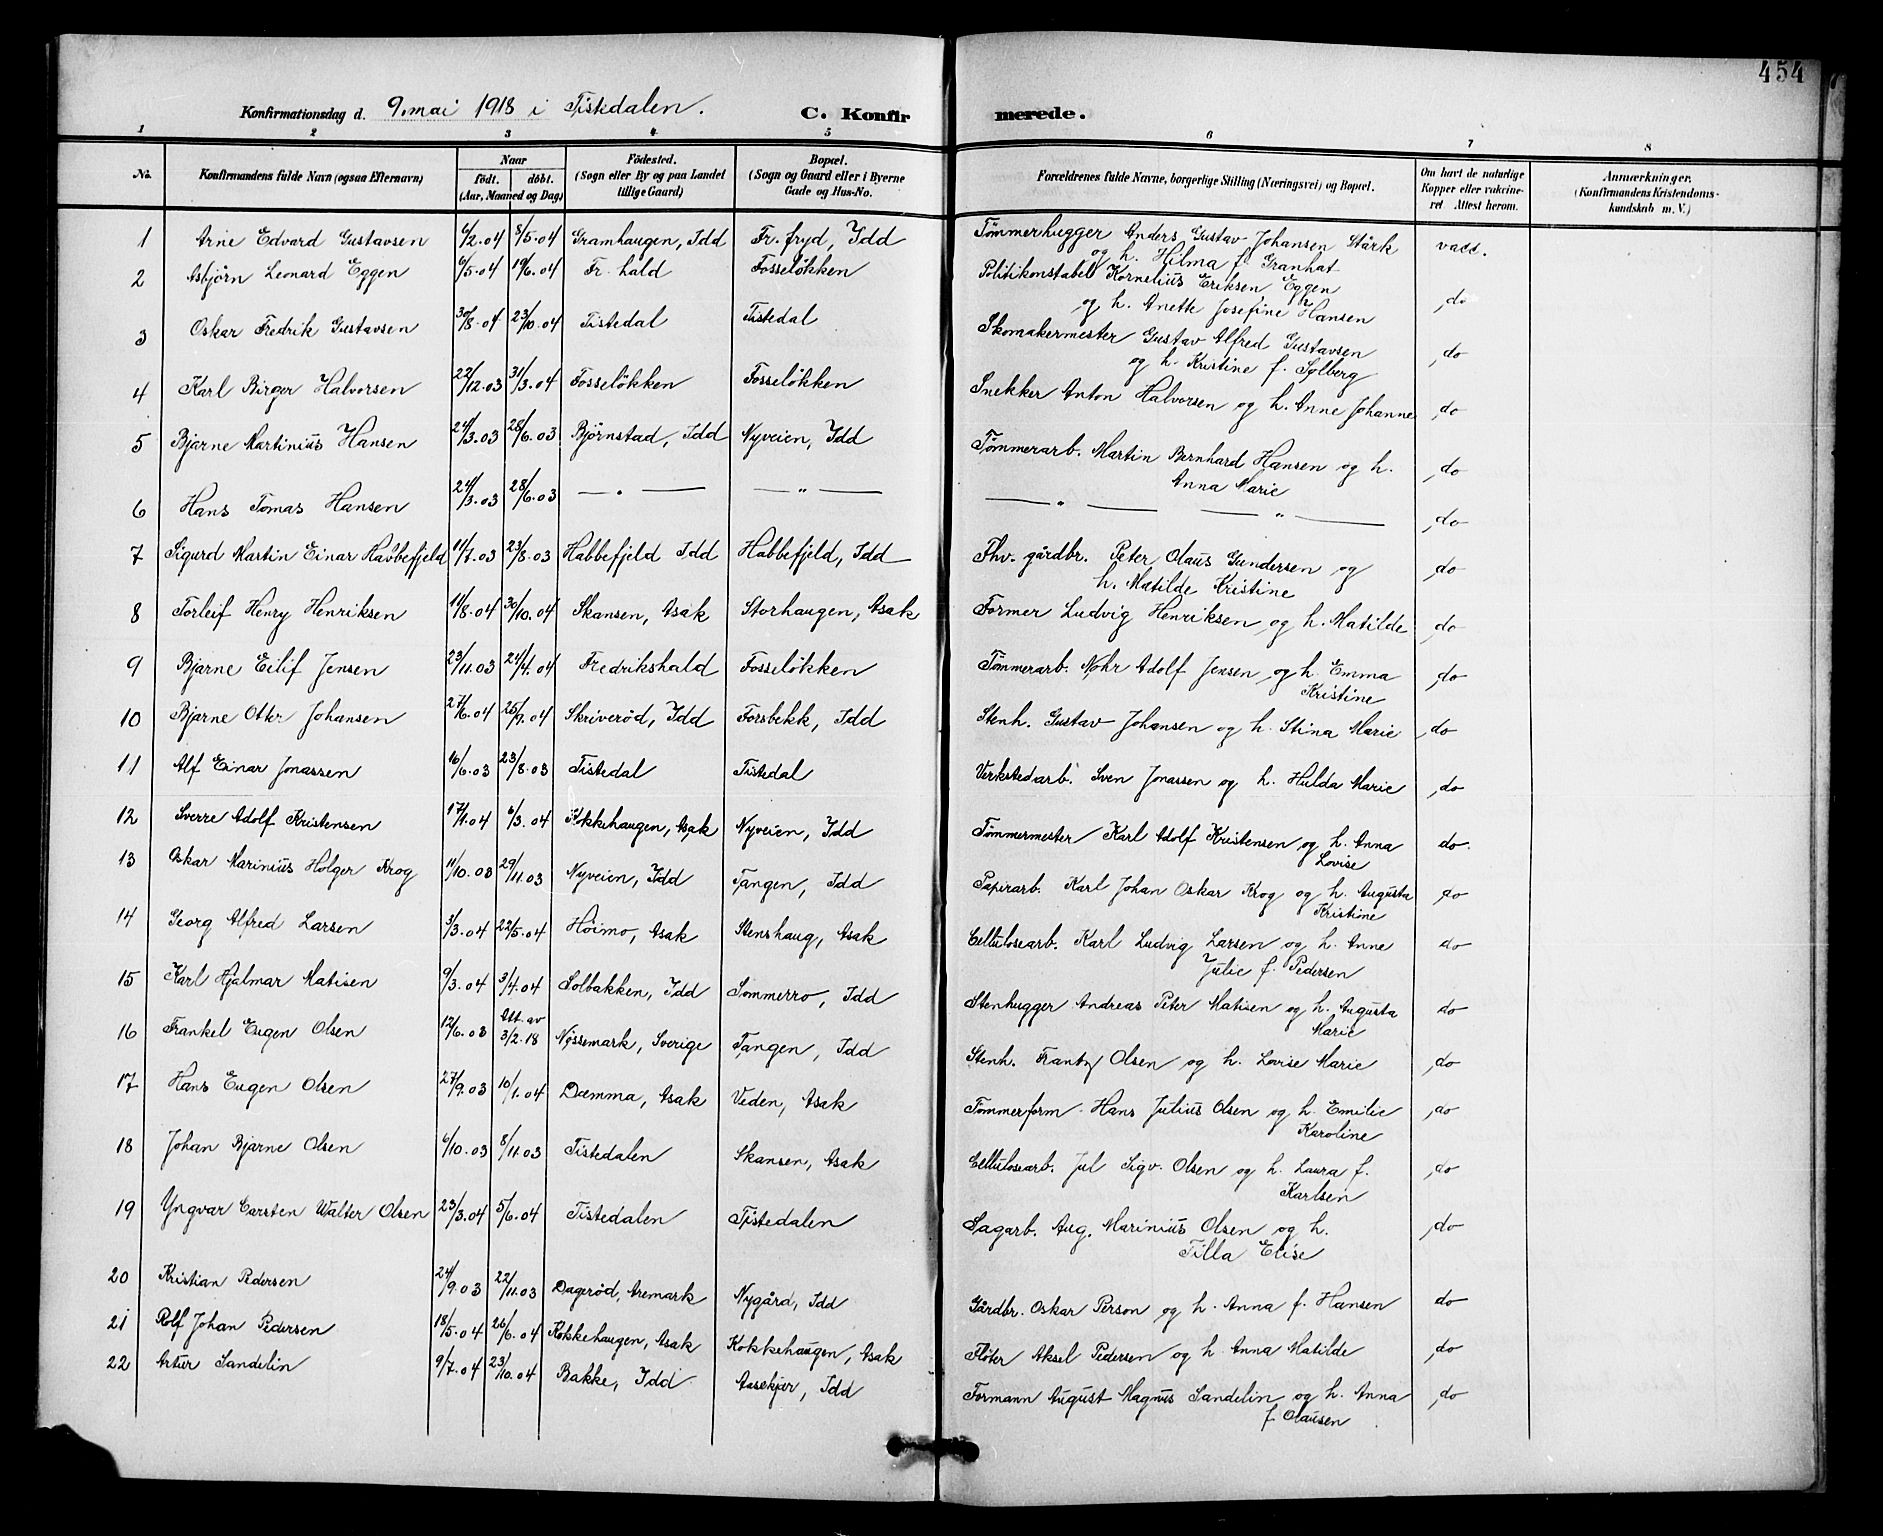 454
Konfirmationsdag d. 9. mai 1918 i Tistedalen. C. Konfirmerede.
1 2 3 4 5 6 7 8
No. Konfirmandens fulde Navn (ogsaa Efternavn) Naar født. døbt. (Aar, Maaned og Dag) Födested. (Sogn eller By og paa Landet tillige Gaard) Bopæl. (Sogn og Gaard eller i Byerne Gade og Hus-No. Forældrenes fulde Navne, borgerlige Stilling (Næringsvei) og Bopæl. Om havt de naturlige Kopper eller vaccineret Attest herom. Anmærkninger. (Konfirmandens Kristendomskundskab m. V.)
1 Arne Edvard Gustavsen 6/2.04 8/5.04 Gramhaugen, Idd Fr. fryd, Idd Tømmerhugger Anders Gustav Johansen Stärk vacc.
og h. Hilma f. Granhat
2 Asbjörn Leonard Eggen 6/5.04 19/6.04 Fr. hald Fosseløkken Politikonstabel Kornelius Eriksen Eggen do
og h. Anette Josefine Hansen
3 Oskar Fredrik Gustavsen 30/8.04 23/10.04 Tistedal Tistedal Skomakermester Gustav Alfred Gustavsen do
og h. Kristine f. Solberg
4 Karl Birger Halvorsen 22/12.03 31/3.04 Fosseløkken Fosseløkken Snekker Anton Halvorsen og h. Anne Johanne do
5 Bjarne Martinius Hansen 24/3.03 28/6.03 Bjørnstad, Idd Nyveien, Idd Tømmerarb. Martin Bernhard Hansen og h. do
Anna Marie
6 Hans Tomas Hansen 24/3.03 28/6.03 — „ — — „ — — „ — — „ — do
7 Sigurd Martin Einar Habbefjeld 11/7.03 23/8.03 Habbefjeld Idd Habbefjeld, Idd Fhv. gårdbr. Peter Olaus Gundersen og do
h. Matilde Kristine
8 Torleif Henry Henriksen 14/8.04 30/10.04 Skansen, Asak Storhaugen, Asak Former Ludvig Henriksen og h. Matilde do
9 Bjarne Eilif Jensen 23/11.03 24/4.04 Fredrikshald Fosseløkken Tømmerarb. Nohr Adolf Jensen og h. Emma do
Kristine
10 Bjarne Otter Johansen 27/6.04 25/7.04 Skriverød, Idd Forsbekk, Idd Stenh. Gustav Johansen og h. Stina Marie do
11 Alf Einar Jonassen 16/6.03 23/8.03 Tistedal Tistedal Verkstedarb. Sven Jonassen og h. Hulda Marie do
12 Sverre Adolf Kristensen 17/1.04 6/3.04 Kokkehaugen, Asak Nyveien, Idd Tömmermester Karl Adolf Kristensen og h. Anna do.
Lovise
13 Oskar Marinius Holger Krog 11/10.03 29/11.03 Nyveien, Idd Tangen, Idd Papirarb. Karl Johan Oskar Krog og h. Augusta do
Kristine
14 Georg Alfred Larsen 3/3.04 22/5.04 Höimo, Asak Stenshaug, Asak Cellulosearb. Karl Ludvig Larsen og h. Anne do
Julie f. Pedersen
15 Karl Hjalmar Matisen 9/3.04 3/4.04 Solbakken, Idd Sommerro, Idd Stenhugger Andreas Peter Matisen og h. Augusta do
Marie
16 Frankel Eugen Olsen 12/6.03 Att. av 3/2.18 Nøssemark, Sverige Tangen, Idd Stenh. Frantz Olsen og h. Lovise Marie do
17 Hans Eugen Olsen 27/9.03 10/1.04 Dæmma, Asak Veden, Asak Tømmerform. Hans Julius Olsen og h. Emilie do
Karoline
18 Johan Bjarne Olsen 6/10.03 8/11.03 Tistedalen Skansen, Asak Cellulosearb. Jul Sigv. Olsen og h. Laura f. do
Karlsen
19 Yngvar Carsten Walter Olsen 23/3.04 5/6.04 Tistedalen Tistedalen Sagarb. Aug. Marinius Olsen og h. do
Tilla Elise
20 Kristian Pedersen 24/9.03 22/11.03 Dagerød, Aremark Nygård, Idd Gårdbr. Oskar Person og h. Anna f. Hansen do
21 Rolf Johan Pedersen 18/5.04 26/6.04 Kokkehaugen, Asak Kokkehaugen, Asak Fløter Aksel Pedersen og h. Anna Matilde do
22 Artur Sandelin 9/7.04 23/10.04 Bakke, Idd Aasekjær, Idd Formann August Magnus Sandelin og h. Anna do
f. Olausen